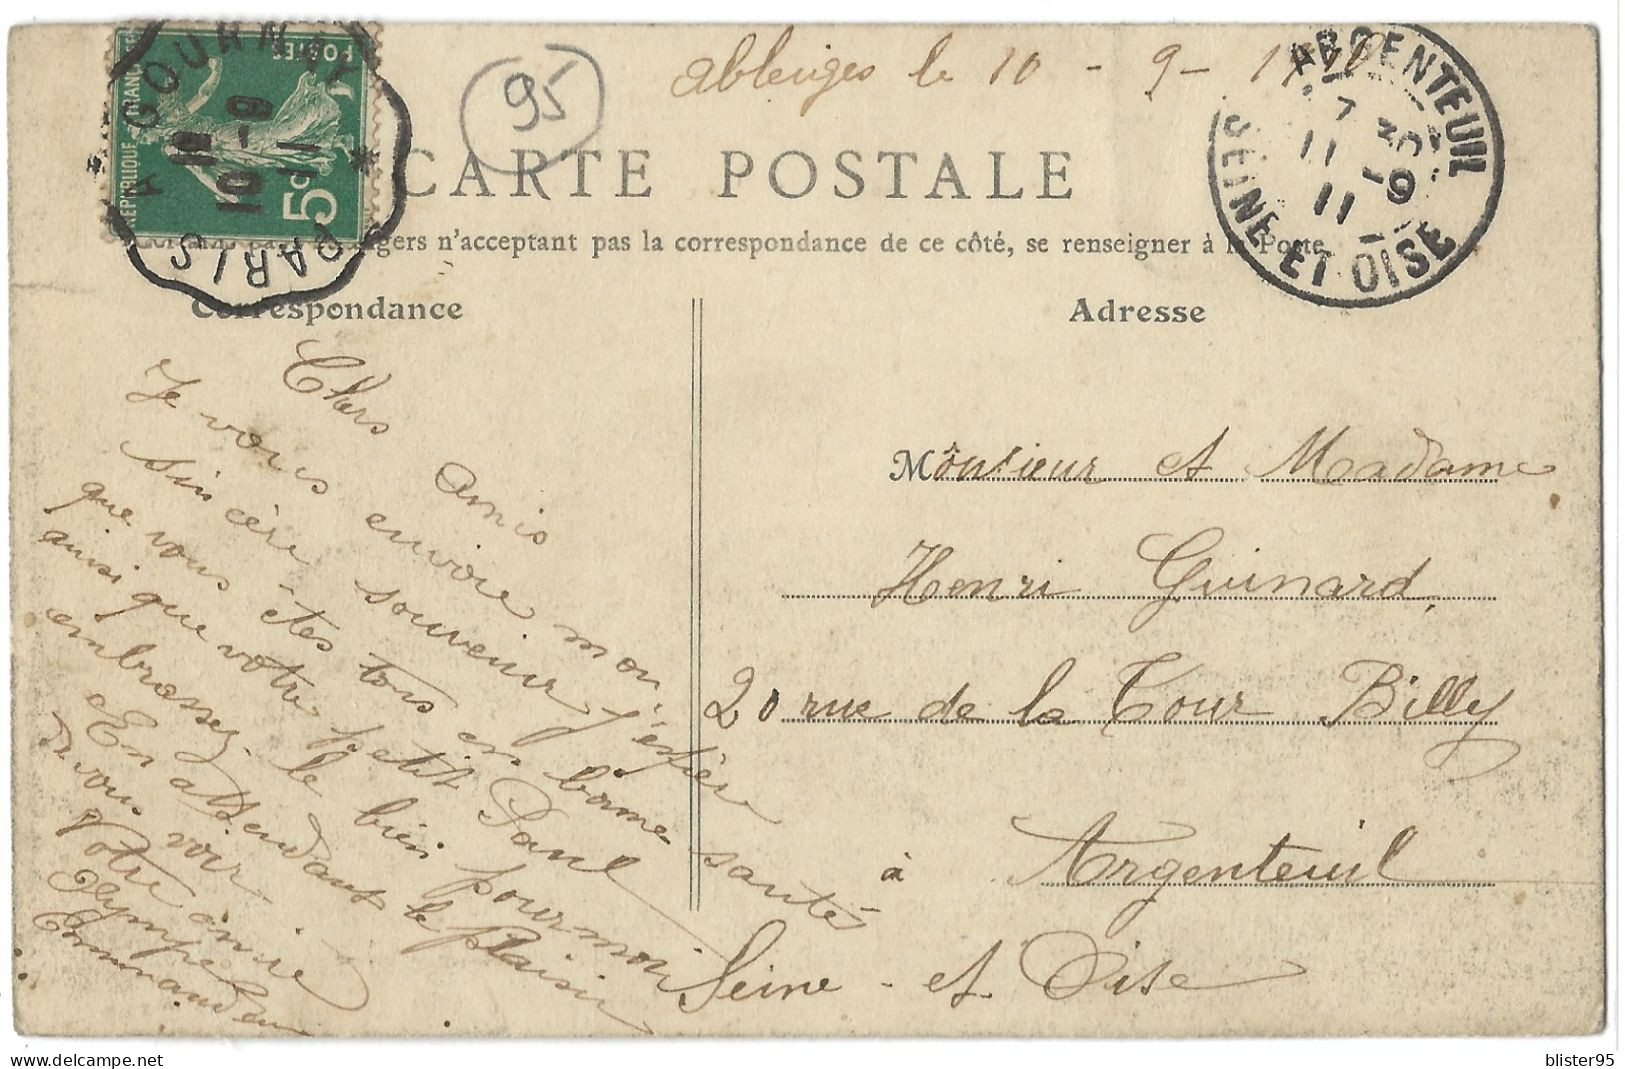 ableiges le 10 - 9 - 1910
95
POSTES
REPUBLIQUE FRANCAISE
5c
PARIS A GOURNAY
10 - 9
11
ARGENTEUIL
7 30
11 - 9
11
SEINE ET OISE
CARTE POSTALE
n'acceptant pas la correspondance de ce côté, se renseigner à la Poste
Correspondance
Adresse
Chers amis
Je vous envoie mon
sincère souvenir j'espère
que vous êtes tous en bonne santé
ainsi que votre petit Paul
embrassez-le bien pour moi
En attendant le plaisir
de vous voir
Votre amie
Olympe
Monsieur et Madame
Henri Guinard,
20 rue de la Tour Billy
à Argenteuil
Seine - et Oise
blister95